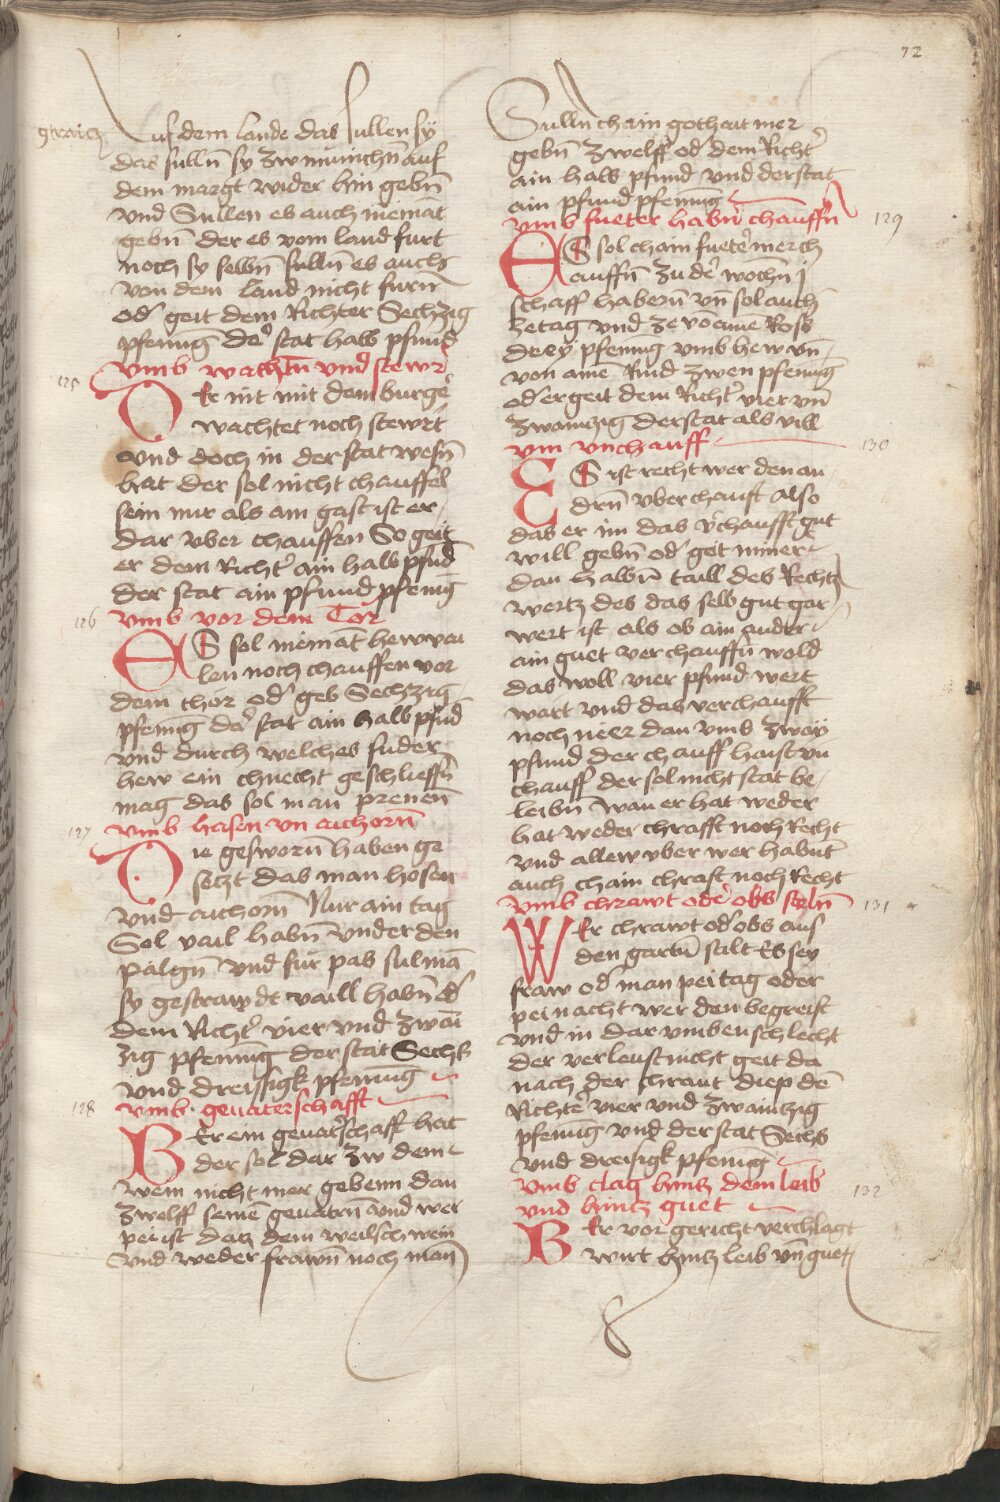 72
gtraitz
Auf dem lande das sullen sy
das sulln̄ sy zw münichn̄ auf
dem margt wider hin gebn̄
vnd Sullen es auch niemāt
gebn̄ der es vom land furt
noch sy selbn̄ sulln̄ es auch
von dem land nicht furn̄
od' geit dem Richter Sechzig
pfennīg de' stat halb pfund
125
vmb wachtn̄ vnd stewr
Er nit mit dem burge'
wachtet noch stewrt
vnd doch in der stat wesn̄
hat der sol nicht chauffel
sein nur als ain gast ist er
dar vber chauffen So geit
er dem Richt' ain halb pfūd
der stat ain pfund pfenīg
126
vmb vor dem Tor
ES sol niemāt hew vai
len noch chauffen vor
dem thor od' geb Sechzig
pfenīg de' stat ain halb pfūd
vnd durch welches fuder
hew ein chnecht geschlieffn̄
mag das sol man prenen̄
127
vmb hasen vn aichorn̄
Die gesworn̄ haben ge
setzt das man hosen
vnd aichorn̄ Nur ain tag
Sol vail habn̄ vnder den
palgn̄ vnd für pas sul mā
sy gestraw dt vaill habn̄ od'
dem Richt' vier vnd zwāī
zig pfennīg der stat Sechs
vnd dreissigk pfennīg
128
vmb geuaterschafft
Wer ein geuat'schaff hat
der sol dar zw dem
wein nicht mer gebenn dan
zwelff seinē geuatrn̄ vnd wer
pei ist datz dem weilsch wein
vnd weder frawn̄ noch man̄
Sulln̄ chain gothait mer
gebn̄ zwelff od' dem Richt'
ain halb pfund vnd der stat
ain pfund pfennīg
vmb fueter habn̄ chauffn̄
129
ES sol chain fuete' mer ch
auffn̄ zu de' wochn̄ j
schaff habern̄ vn̄ sol auch
ze tag vnd ze vō aine Ross
drey pfennig vmb hew vn̄
von aine Rind zwen pfenīg
od' er geit dem Richt' vier vn̄
zwaintzig der stat als vill
vm vnchauff
130
ES ist recht wer den an
drn̄ vber chauft also
das er im das v'chaufft gut
will gebn̄ od' geit nimer
dan halbn̄ taill des Rechtn̄
wertz des das selb gut gar
wert ist als ob ain ander
ain guet ver chauffn̄ wold
das woll vier pfund wert
wart vnd das verchaufft
noch neer dan vmb zway
pfund der ch auff haist vn
chauff der sol nicht stat be
leibn̄ wan er hat weder
hat weder chrafft noch Recht
vnd allew vber wer habnt'
auch chain chraft noch Recht
vmb chrawt ode' obs steln̄
131
Wer chrawt od' obs aus
den gartn̄ stilt Es sey
fraw od' man pei tag oder
pei nacht wer den begreift
vnd in dar vmb enschlecht
der verleust nicht geit da
nach der chraut diep dē
Richte' vier vnd zwaintzig
pfenīg vnd der stat Sechs
vnd dreisigk pfenīg
vmb clag hintz dem leib
vnd hintz guet
132
Wer vor gericht verchlagt
wirt hintz leib vn̄ guet